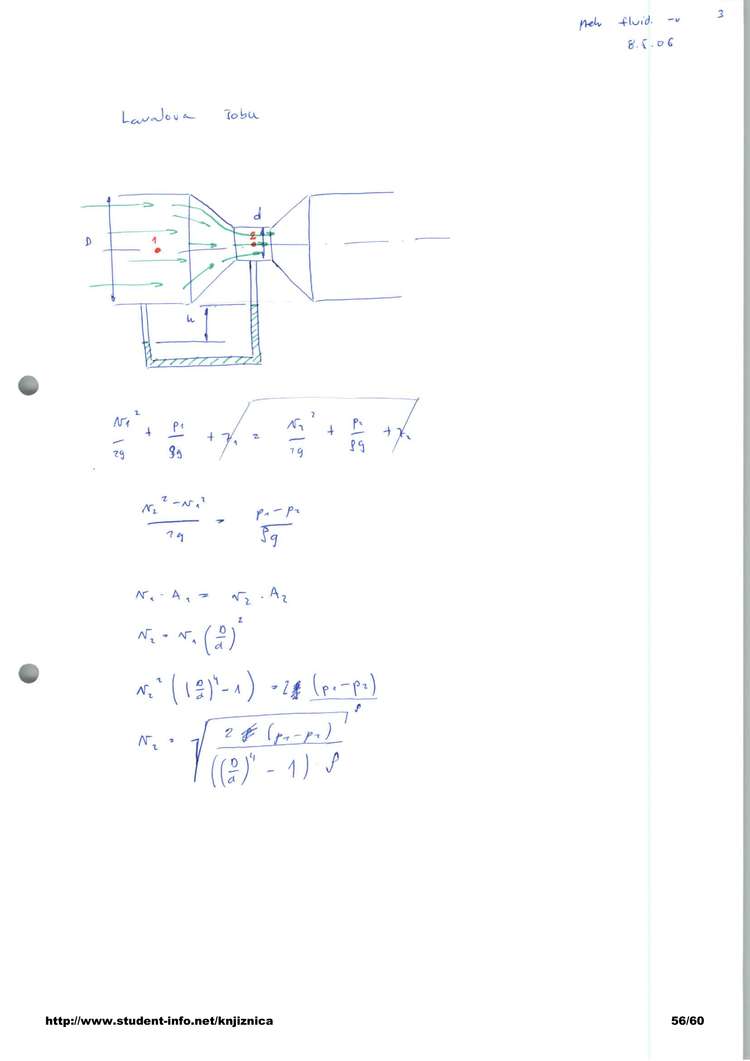 3
Meh fluid. -v
8.5.06
Lavalova šoba
d
D
1
2
h
v₁²/2g + p₁/ρg + z₁ = v₂²/2g + p₂/ρg + z₂
(v₂² - v₁²)/2g = (p₁ - p₂)/ρg
v₁ · A₁ = v₂ · A₂
v₂ = v₁ (D/d)²
v₂² ((D/d)⁴ - 1) = 2 (p₁ - p₂)/ρ
v₂ = √(2 (p₁ - p₂)/(((D/d)⁴ - 1) · ρ))
http://www.student-info.net/knjiznica 56/60